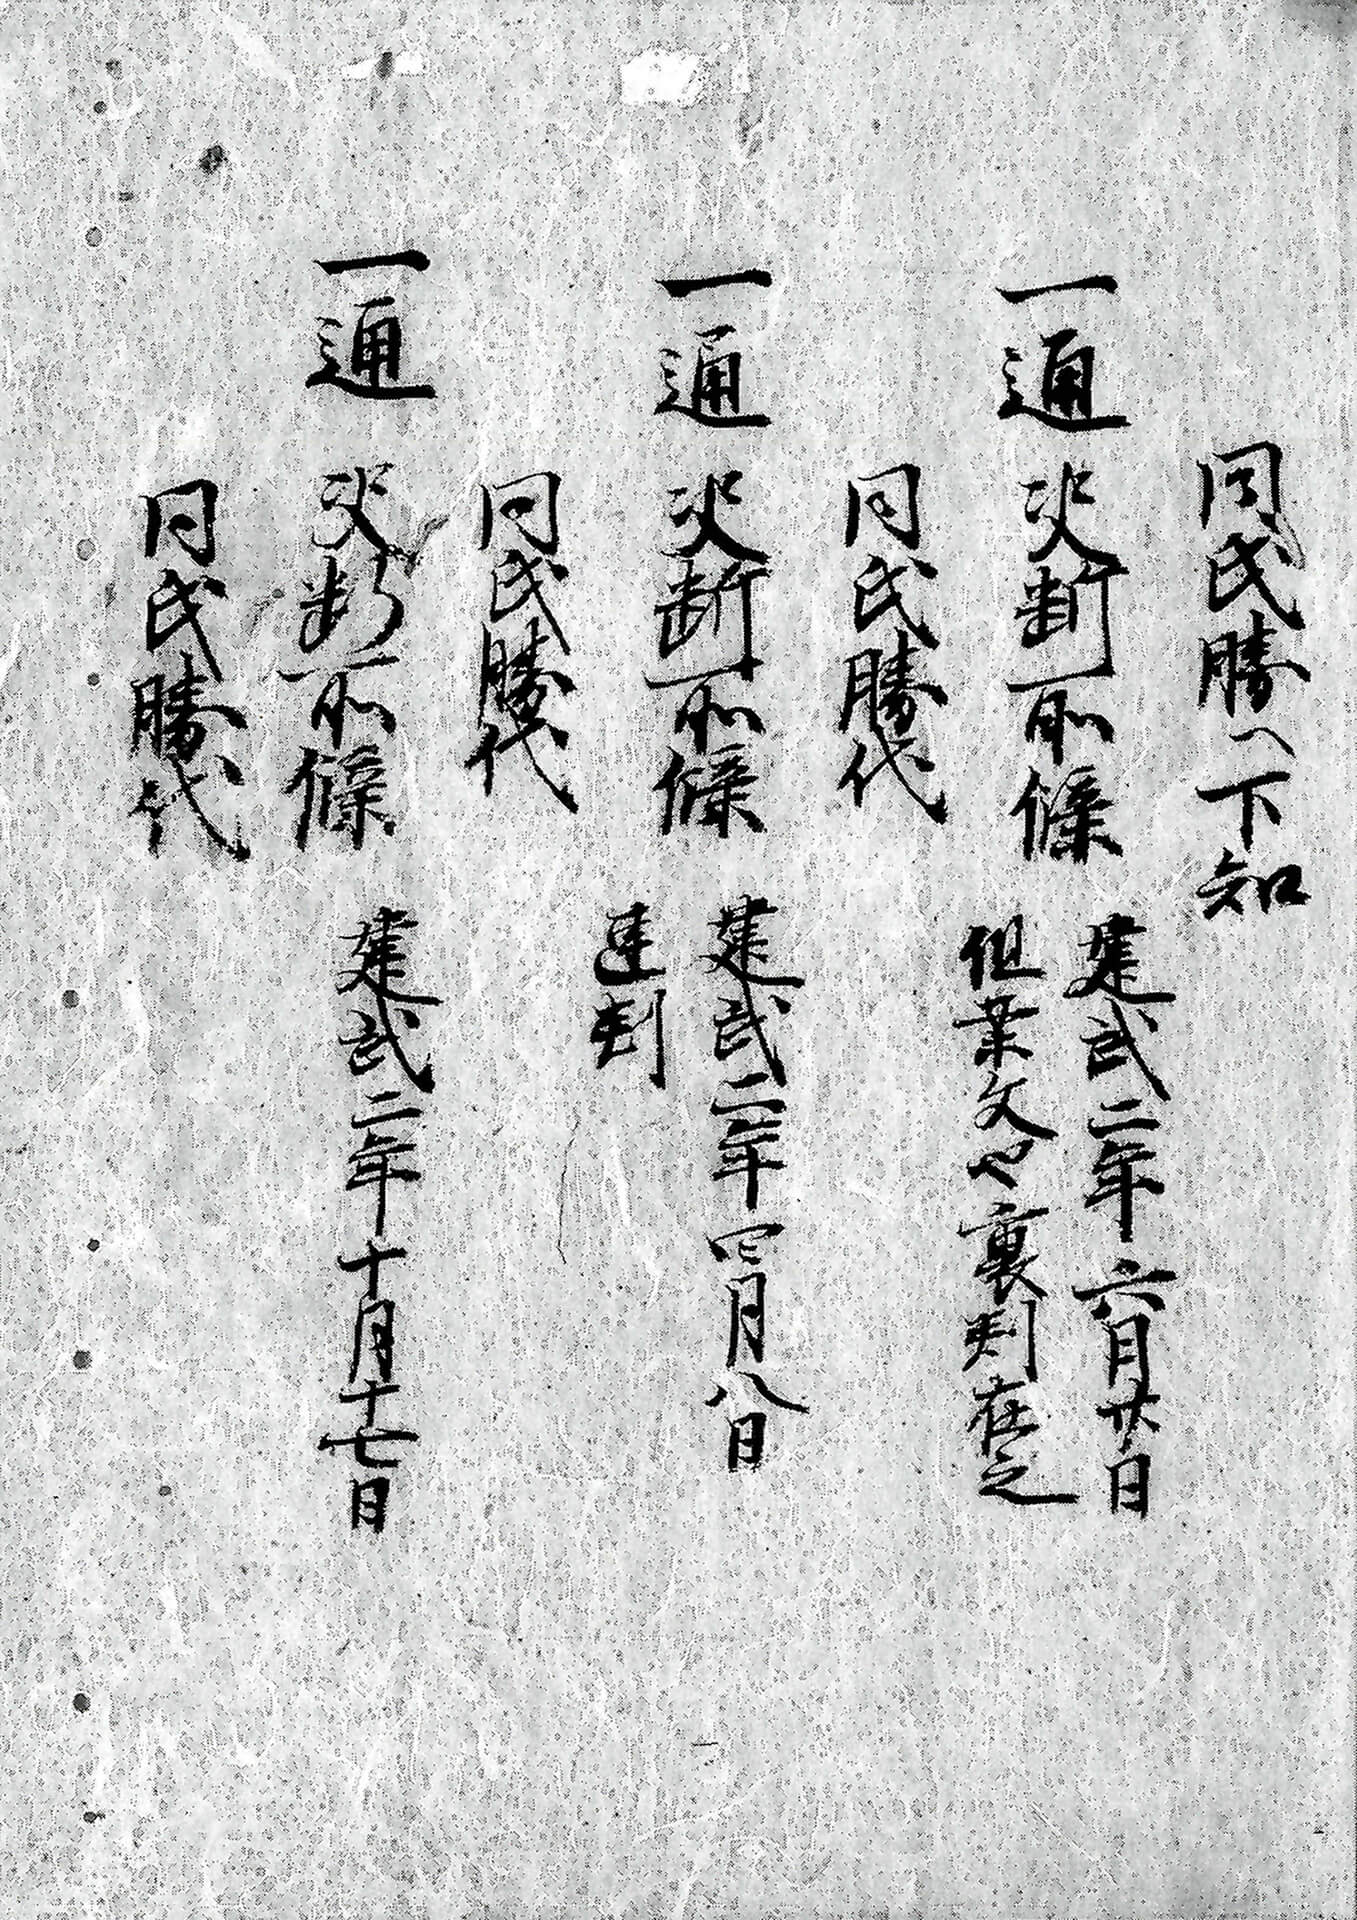 同氏勝へ下知
一通 决断所牒 建武二年六月廿日
但案文也裏判在之
同氏勝代
一通 决断所牒 建武二年四月八日
連判
同氏勝代
一通 决断所牒 建武二年十月十七日
同氏勝代